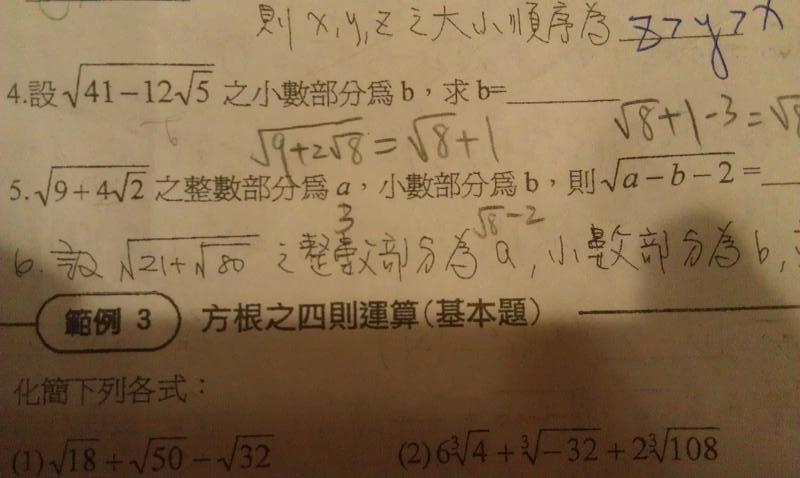 則 x, y, z 之大小順序為 z>y>x
4.設√(41−12√5) 之小數部分爲 b，求 b=______
√(9+2√8) = √8+1
√8+1-3=√8
5.√(9+4√2) 之整數部分爲 a，小數部分爲 b，則√(a−b−2) =
3
√8-2
6. 設 √(21+√80) 之整數部分為 a, 小數部分為 b,
範例 3 方根之四則運算(基本題)
化簡下列各式：
(1)√18+√50−√32 (2)6∛4+∛−32+2∛108